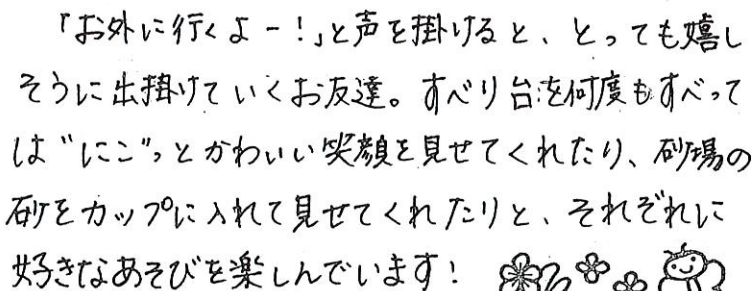 「お外に行くよー！」と声を掛けると、とっても嬉し
そうに出掛けていくお友達。すべり台を何度もすべって
は“にこ”っとかわいい笑顔を見せてくれたり、砂場の
砂をカップに入れて見せてくれたりと、それぞれに
好きなあそびを楽しんでいます！